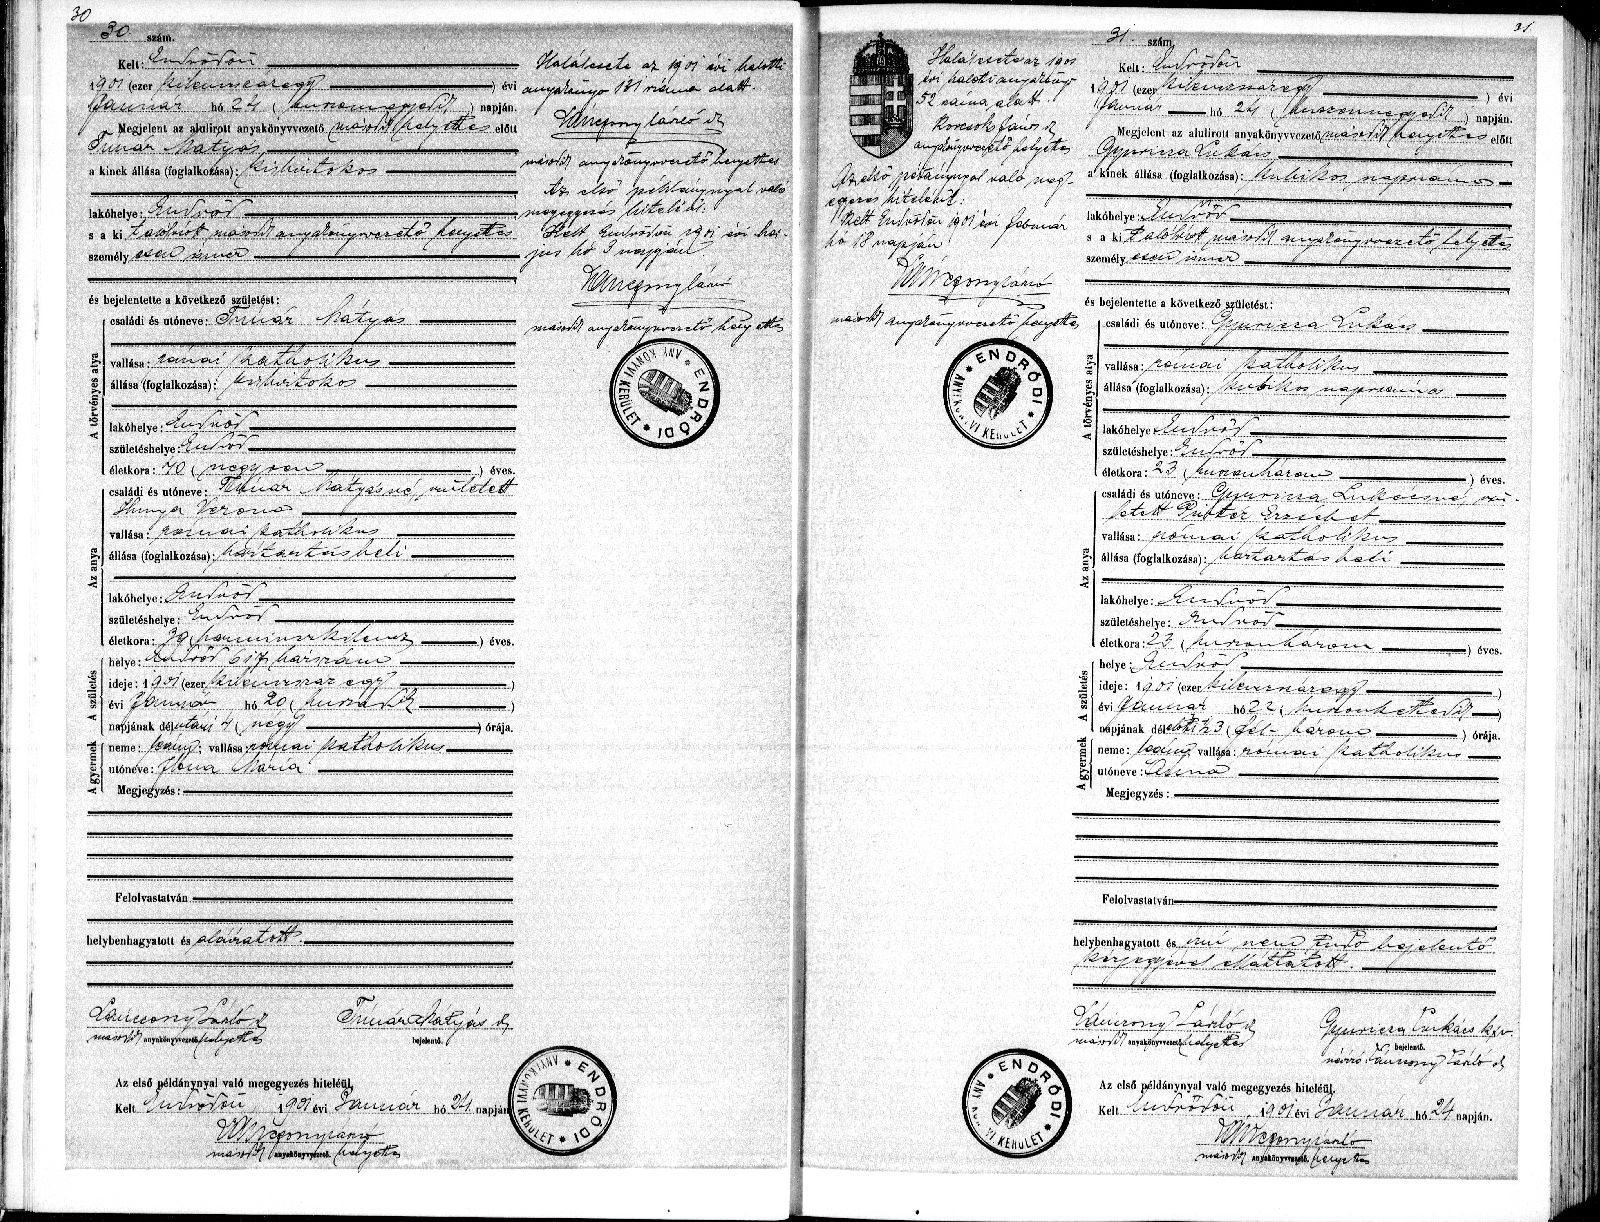 30
30 szám.
Kelt: Endrődön
1901 (ezer kilencszázegy ) évi
Január hó 24 (huszonnegyedik) napján.
Megjelent az alulirott anyakönyvvezető másodh helyettes előtt
Timár Mátyás
a kinek állása (foglalkozása): kisbirtokos
lakóhelye: Endrőd
s a ki t alólirott másodh anyakönyvvezető helyettes
személyesen ismer
és bejelentette a következő születést:
A törvényes atya
családi és utóneve: Timár Mátyás
vallása: római katholikus
állása (foglalkozása): kisbirtokos
lakóhelye: Endrőd
születéshelye: Endrőd
életkora: 40 (negyven ) éves.
Az anya
családi és utóneve: Timár Mátyásné, született
Hunya Verona
vallása: római katholikus
állása (foglalkozása): háztartásbeli
lakóhelye: Endrőd
születéshelye: Endrőd
életkora: 39 (harminczkilencz ) éves.
A születés
helye: Endrőd 617 házszám
ideje: 1901 (ezer kilenczszáz egy )
évi Január hó 20 (huszadik )
napjának délutáni 4 (négy ) órája.
A gyermek
neme: leány; vallása: római katholikus
utóneve: Ilona Mária
Megjegyzés:
Felolvastatván
helybenhagyatott és aláiratott.
Lánczony László
másodh anyakönyvvezető helyettes
Timár Mátyás
bejelentő.
Az első példánynyal való megegyezés hiteléül,
Kelt Endrődön, 1901 évi Január hó 24 napján
Lánczony László
másodh anyakönyvvezető helyettes
ENDRŐDI * ANYAKÖNYVI KERÜLET *
Halálesete az 1901 évi halotti
anyakönyv 131 száma alatt.
Lánczony László
másodh anyakönyvvezető helyettes
Az első példánynyal való
megegyezés hiteléül:
Kelt Endrődön 1901 évi
hó 3 napján
Lánczony László
másodh anyakönyvvezető helyettes
ENDRŐDI * ANYAKÖNYVI KERÜLET *
31
31 szám.
Halálesete az 1901
évi haloti anyakönyv
52 száma alatt.
Korcsok János
anyakönyvvezető helyettes
Az első példánynyal való meg-
egyezés hiteléül:
Kelt Endrődön 1901 évi február
hó 18 napján
Lánczony László
másodh anyakönyvvezető helyettes
ENDRŐDI * ANYAKÖNYVI KERÜLET *
Kelt: Endrődön
1901 (ezer kilenczszázegy ) évi
Január hó 24 (huszonnegyedik ) napján.
Megjelent az alulirott anyakönyvvezető másodh helyettes előtt
Gyuricza Lukács
a kinek állása (foglalkozása): kubikos napszámos
lakóhelye: Endrőd
s a ki t alólirott másodh anyakönyvvezető helyettes
személyesen ismer
és bejelentette a következő születést:
A törvényes atya
családi és utóneve: Gyuricza Lukács
vallása: római katholikus
állása (foglalkozása): kubikos napszámos
lakóhelye: Endrőd
születéshelye: Endrőd
életkora: 23 (huszonhárom ) éves.
Az anya
családi és utóneve: Gyuricza Lukácsné, szü-
letett Erzsébet
vallása: római katholikus
állása (foglalkozása): háztartásbeli
lakóhelye: Endrőd
születéshelye: Endrőd
életkora: 23 (huszonhárom ) éves.
A születés
helye: Endrőd
ideje: 1901 (ezer kilenczszázegy )
évi Január hó 22 (huszonkettedik )
napjának délelőtti ½3 (fél-három ) órája.
A gyermek
neme: leány vallása: római katholikus
utóneve: Anna
Megjegyzés:
Felolvastatván
helybenhagyatott és irni nem tudó bejelentő
kézjegyével elláttatott.
Lánczony László
másodh anyakönyvvezető helyettes
Gyuricza Lukács
bejelentő.
névíró Lánczony László
Az első példánynyal való megegyezés hiteléül,
Kelt Endrődön, 1901 évi Január hó 24 napján.
Lánczony László
másodh anyakönyvvezető helyettes
ENDRŐDI * ANYAKÖNYVI KERÜLET *